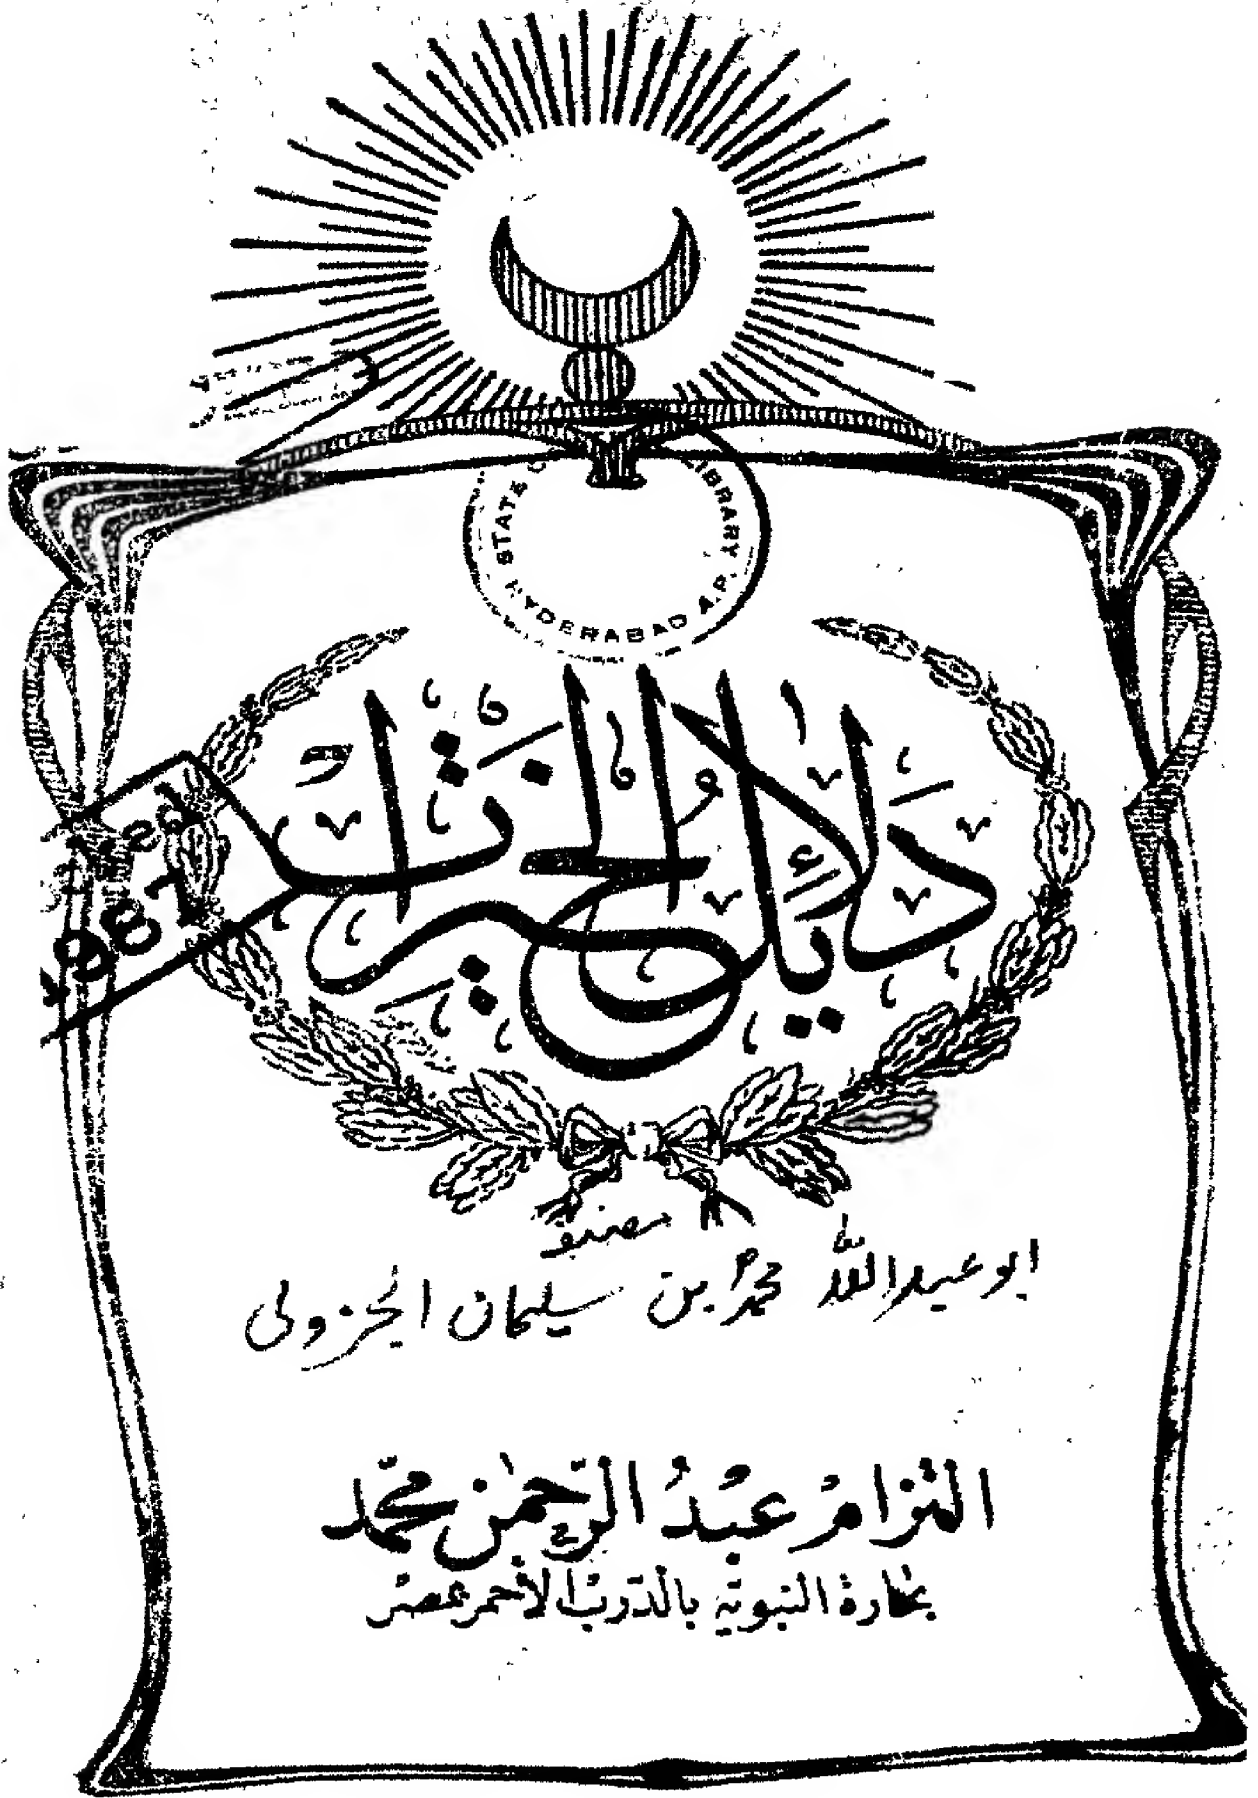 STATE LIBRARY
HYDERABAD A.P.
دَلَائِلُ الْخَيْرَاتِ
1987
مصنف
ابو عبد اللہ محمد بن سلیمان الجزولی
التزام عبد الرحمن محمد
بحارة النبوية بالدرب الأحمر بمصر